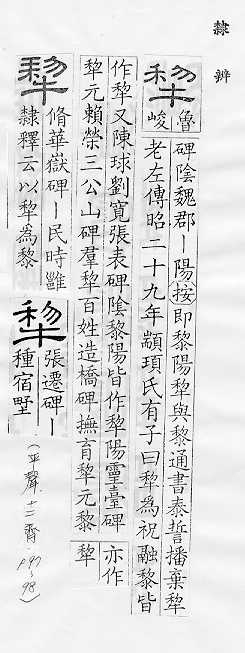 隸辨
犂
魯
峻
碑陰魏郡ー陽按即黎陽犂與黎通書泰誓播棄犂
老左傳昭二十九年顓頊氏有子曰犂為祝融黎皆
作犂又陳球劉寬張表碑陰黎陽皆作犂陽靈臺碑
犂元賴榮三公山碑羣犂百姓造橋碑撫育犂元黎
亦作
犂
犂
脩華嶽碑ー民時雝
隸釋云以犂為黎
犂
張遷碑ー
種宿墅
(平聲十二齊 P97~98)